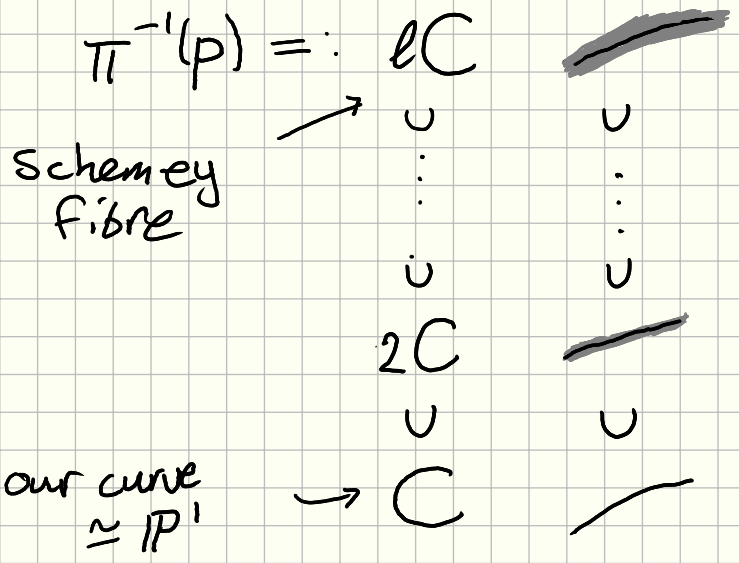 π⁻¹(p) =: ℓC
∪ ∪
schemey
fibre
⋮ ⋮
∪ ∪
2C
∪ ∪
our curve
≃ ℙ¹ → C